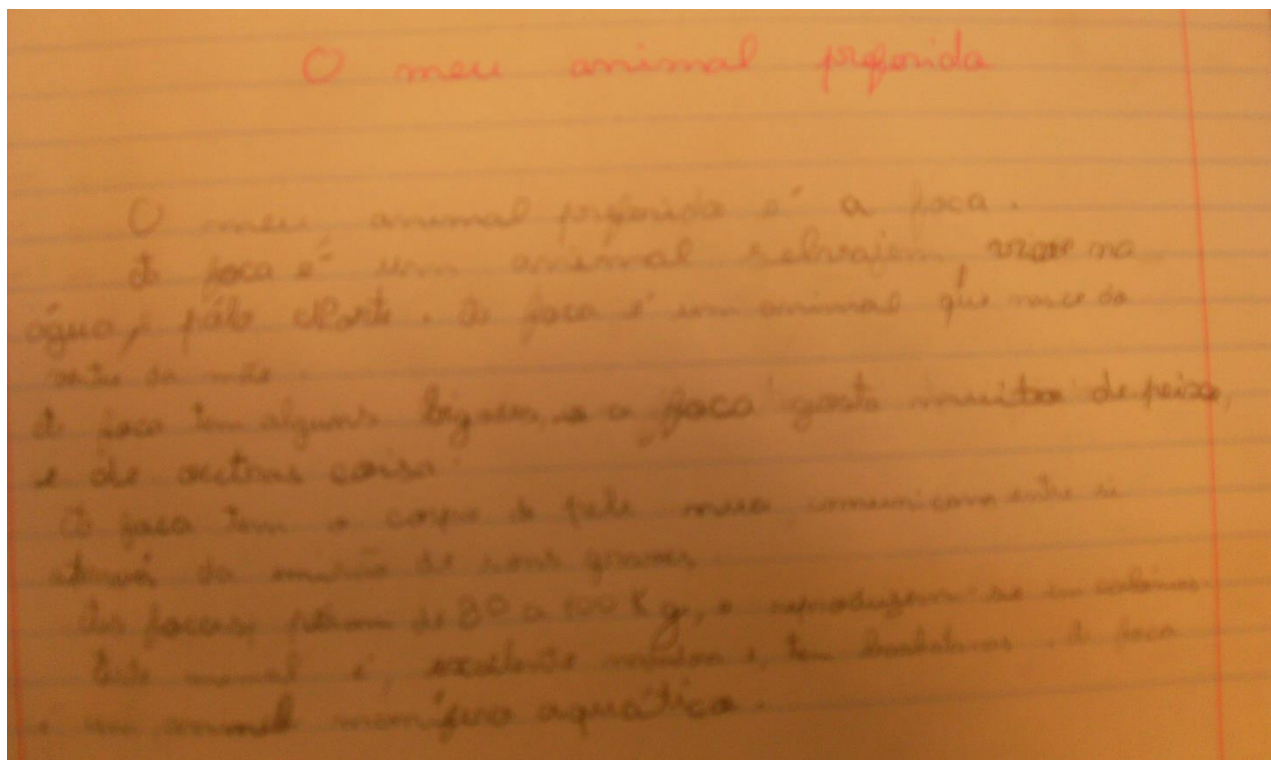 O meu animal preferida
O meu animal preferida é a foca.
A foca é um animal selvajem, vive na
água, e pólo Norte. A foca é um animal que nasce do
ventre da mãe.
A foca tem alguns bigodes, e a foca gosta muito de peixe,
e de coisa.
A foca tem o corpo de pele comunicam entre si
através da emissão de sons graves.
As focas, pesam de 80 a 100 Kg, e reproduzem-se em colónias.
Este é, excelente e, tem barbatanas. A foca
é um animal mamífero aquático.